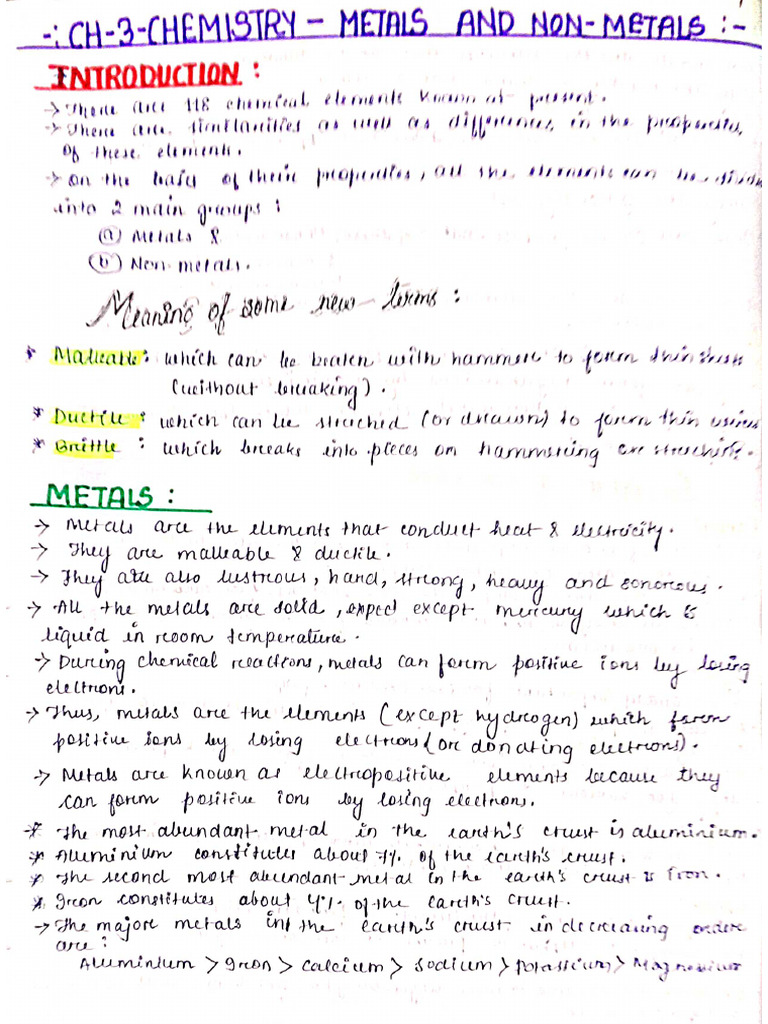 -: CH-3-CHEMISTRY - METALS AND NON-METALS :-
INTRODUCTION :
→ There are 118 chemical elements known at present.
→ There are similarities as well as differences in the properties
of these elements.
→ On the basis of their properties, all the elements can be divided
into 2 main groups :
(a) Metals &
(b) Non-metals.
Meaning of some new terms :
* Malleable : which can be beaten with hammer to form thin sheets
(without breaking).
* Ductile : which can be stretched (or drawn) to form thin wires
* Brittle : which breaks into pieces on hammering or stretching.
METALS :
→ Metals are the elements that conduct heat & electricity.
→ They are malleable & ductile.
→ They are also lustrous, hard, strong, heavy and sonorous.
→ All the metals are solid, expect except mercury which is
liquid in room temperature.
→ During chemical reactions, metals can form positive ions by losing
electrons.
→ Thus, metals are the elements (except hydrogen) which form
positive ions by losing electrons (or donating electrons).
→ Metals are known as electropositive elements because they
can form positive ions by losing electrons.
* The most abundant metal in the earth's crust is aluminium.
* Aluminium constitutes about 7% of the earth's crust.
* The second most abundant metal in the earth's crust is Iron.
* Iron constitutes about 4% of the earth's crust.
→ The major metals int the earth's crust in decreasing order
are :
Aluminium > Iron > Calcium > Sodium > Potassium > Magnesium